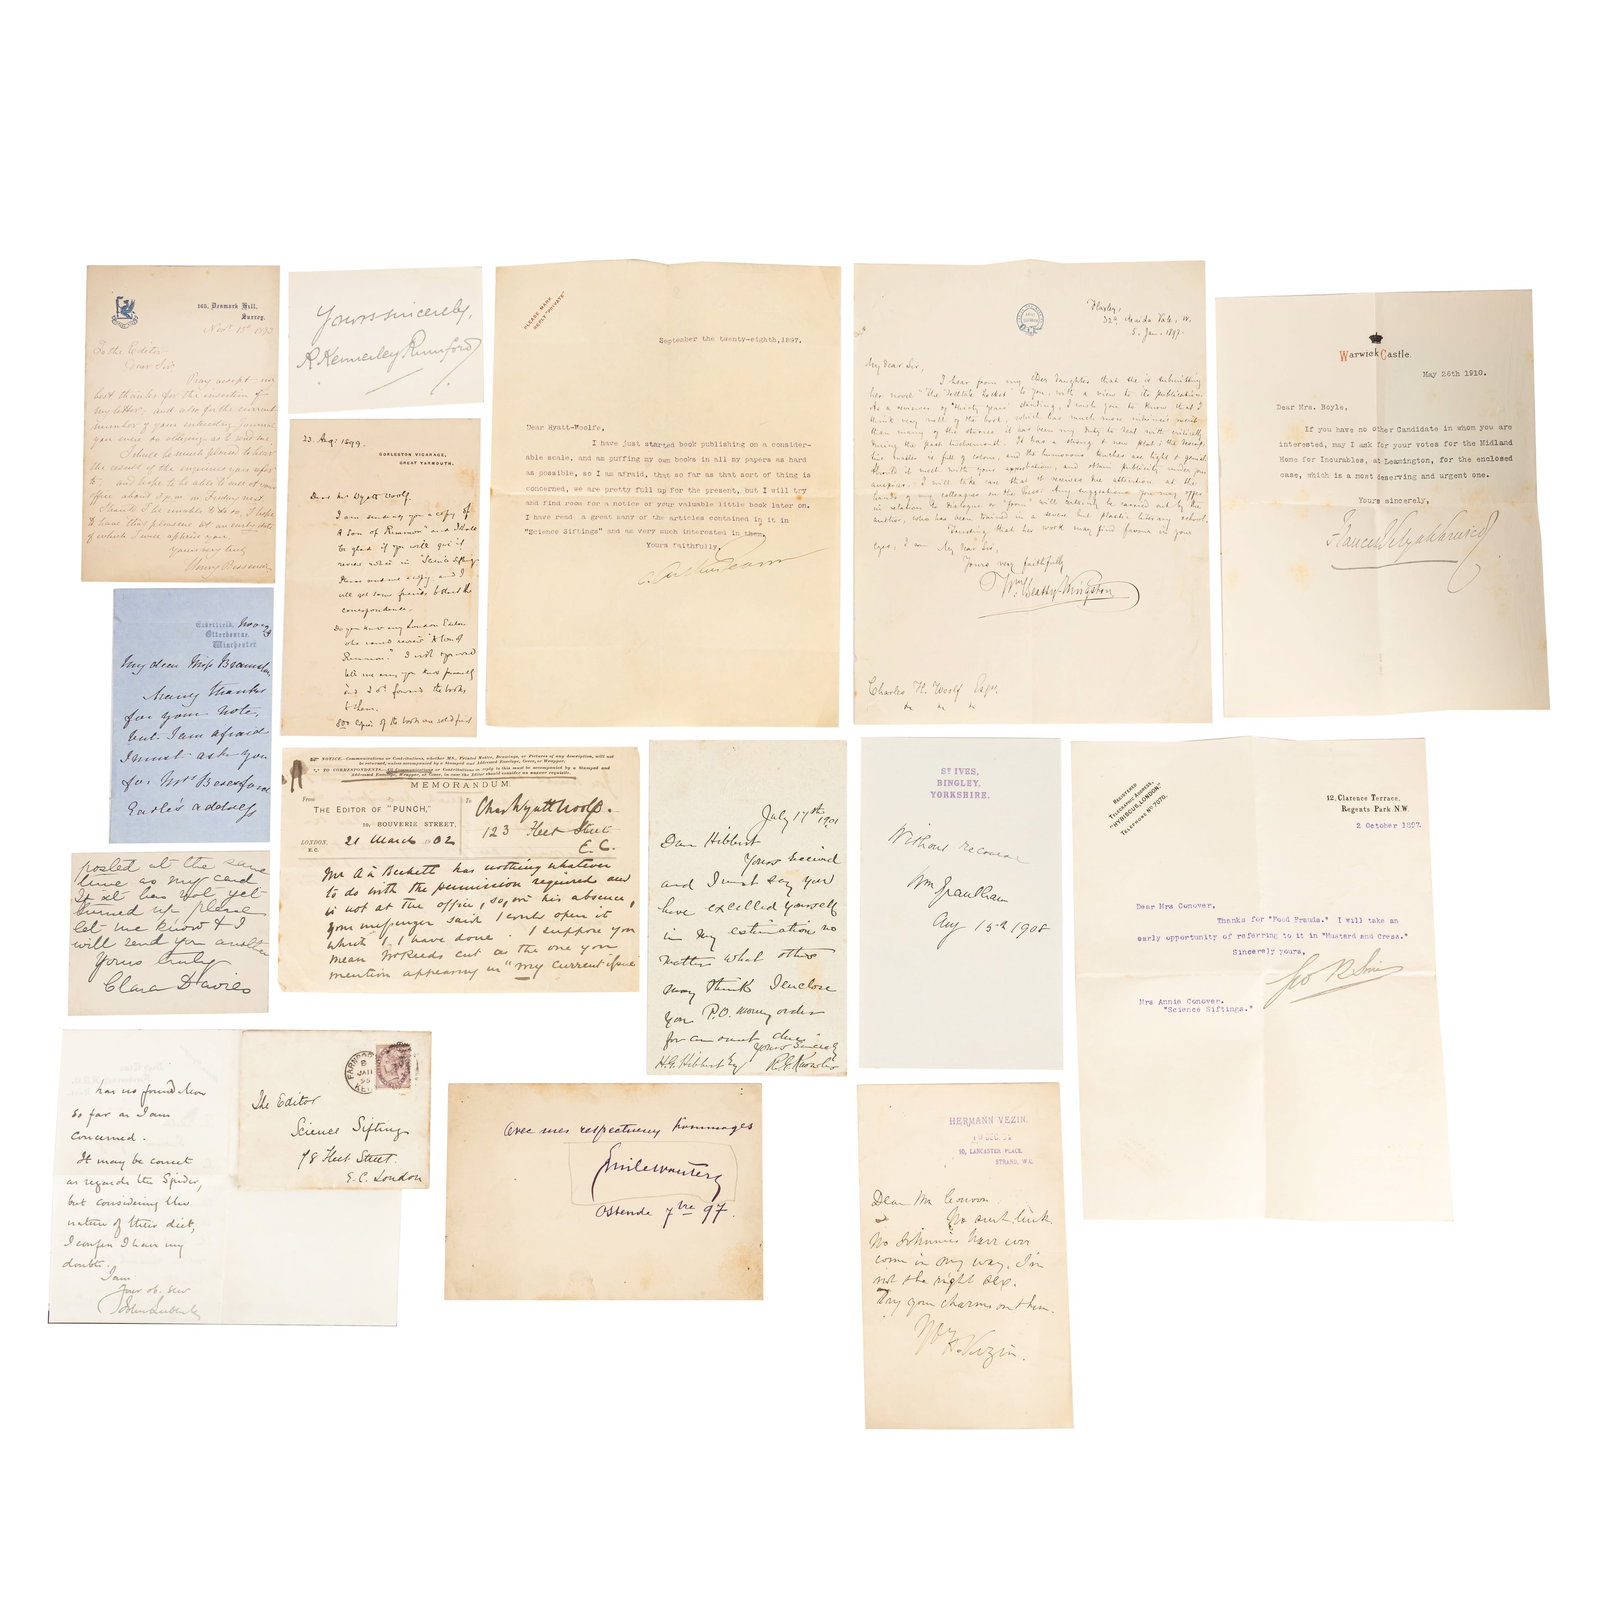 165, Denmark Hill,
Surrey.
Novr. 15th 1893
To the Editor
Dear Sir,
Pray accept my
best thanks for the insertion of
my letter, and also for the current
number of your interesting Journal
you were so obliging as to send me.
I shall be much pleased to hear
the result of the inquiries
and hope to be able to
office about 3 p.m. on Friday next
Should I be unable to do so, I hope
to have that pleasure at an early date
of which I will apprise you.
Yours very truly
Henry Bessemer
Yours sincerely,
R. Kennerley Rumford
PLEASE MARK
REPLY "PRIVATE"
September the twenty-eighth, 1897.
Dear Hyatt-Woolfe,
I have just started book publishing on a consider-
able scale, and am puffing my own books in all my papers as hard
as possible, so I am afraid, that so far as that sort of thing is
concerned, we are pretty full up for the present, but I will try
and find room for a notice of your valuable little book later on.
I have read a great many of the articles contained in it in
"Science Siftings" and am very much interested in them.
Yours faithfully,
C. Arthur Pearson
32a, Maida Vale, W.
5. Jan. 1897.
My dear Sir,
I hear from my Elder daughter that she is submitting
her novel "The Telltale Locket" to you, with a view to its publication.
As a reviewer of "thirty years" standing, I wish you to know that I
think very well of the book, which has much more intrinsic merit
than many of the stories it has been my duty to deal with critically
during the past
tive matter is full of colour, and the humorous touches are light & genial.
Should it meet with your approbation, and obtain publicity under your
auspices, I will take care that it receives due attention at the
hands of my colleagues on the Press. Any suggestions you may offer
in relation to dialogue or "form" will certainly be carried out by the
author, who has been trained in a severe but plastic literary school.
Trusting that her work may find favour in your
eyes, I am My dear Sir,
Yours very faithfully
Wm. Beatty-Kingston
Charles H. Woolf Esqr.
Warwick Castle.
May 26th 1910.
Dear Mrs. Boyle,
If you have no other Candidate in whom you are
interested, may I ask for your votes for the Midland
Home for Incurables, at Leamington, for the enclosed
case, which is a most deserving and urgent one.
Yours sincerely,
23. Aug: 1899.
GORLESTON VICARAGE,
GREAT YARMOUTH.
Dear Mr Hyatt Woolf.
I am sending you a copy of
"A Son of Rimmon" and I shall
be glad if you will give it
review notice in "Science Siftings"
correspondence.
Do you know any London Editors
who would review "A Son of
Rimmon." I wish you would
tell me any you know personally
and I'd forward the books
to them.
800 Copies of the book are sold first
Elderfield,
Otterbourne,
Winchester
My dear Miss Bramston,
Many thanks
for your note,
but I am afraid
I must ask you
for Mrs Beresford
Earle's address
NOTICE.—Communications or Contributions, whether MS., Printed Matter, Drawings, or Pictures of any description, will not
be returned, unless accompanied by a Stamped and Addressed Envelope, Cover, or Wrapper.
TO CORRESPONDENTS.—All Communications or Contributions in reply to this must be accompanied by a Stamped and
Addressed Envelope, Wrapper, or Cover, in case the Editor should consider an answer requisite.
MEMORANDUM.
From
THE EDITOR OF "PUNCH,"
10, BOUVERIE STREET,
LONDON, E.C.
21 March 1902
To
Chas Hyatt Woolf.
123 Fleet Street
E.C.
Mr A à Beckett has nothing whatever
to do with the permission required and
is not at the office, so, in his absence,
your messenger said I could open it
which I have done. I suppose you
mean Mr Reeds cut as the one you
mention appearing in "my current issue"
July 17th 1901
Dear Hibbert
Yours received
and I must say you
have excelled yourself
in my estimation no
matter what others
may think I enclose
you P.O. money order
for amount due
Yours Sincerely
H.G. Hibbert Esq
St IVES,
BINGLEY,
YORKSHIRE.
Without recourse
Wm Grantham
Aug 15th 1908
REGISTERED
TELEGRAPHIC ADDRESS,
"HYBISCUS, LONDON."
TELEPHONE No 7070.
12, Clarence Terrace,
Regents Park N.W.
2 October 1897.
Dear Mrs Conover,
Thanks for "Food Frauds." I will take an
early opportunity of referring to it in "Mustard and Cress."
Sincerely yours,
Geo R Sims
Mrs Annie Conover.
"Science Siftings."
posted at the same
time as my card
If it has not yet
turned up please
let me know & I
will send you another
Yours truly
Clara Davies
has no foundation
so far as I am
concerned.
It may be correct
as regards the Spider,
but considering the
nature of their diet,
I confess I have my
doubts.
I am
Your ob. serv
John Lubbock
The Editor
Science Siftings
78 Fleet Street.
E.C. London
Avec mes respectueux hommages
Emile Wauters
Ostende 7bre 97.
HERMANN VEZIN.
10, LANCASTER PLACE,
STRAND, W.C.
Dear Mrs Conover.
No such luck.
No Johnnies have ever
come in my way. I'm
not the right sex.
Try your charms on them.
H. Vezin.